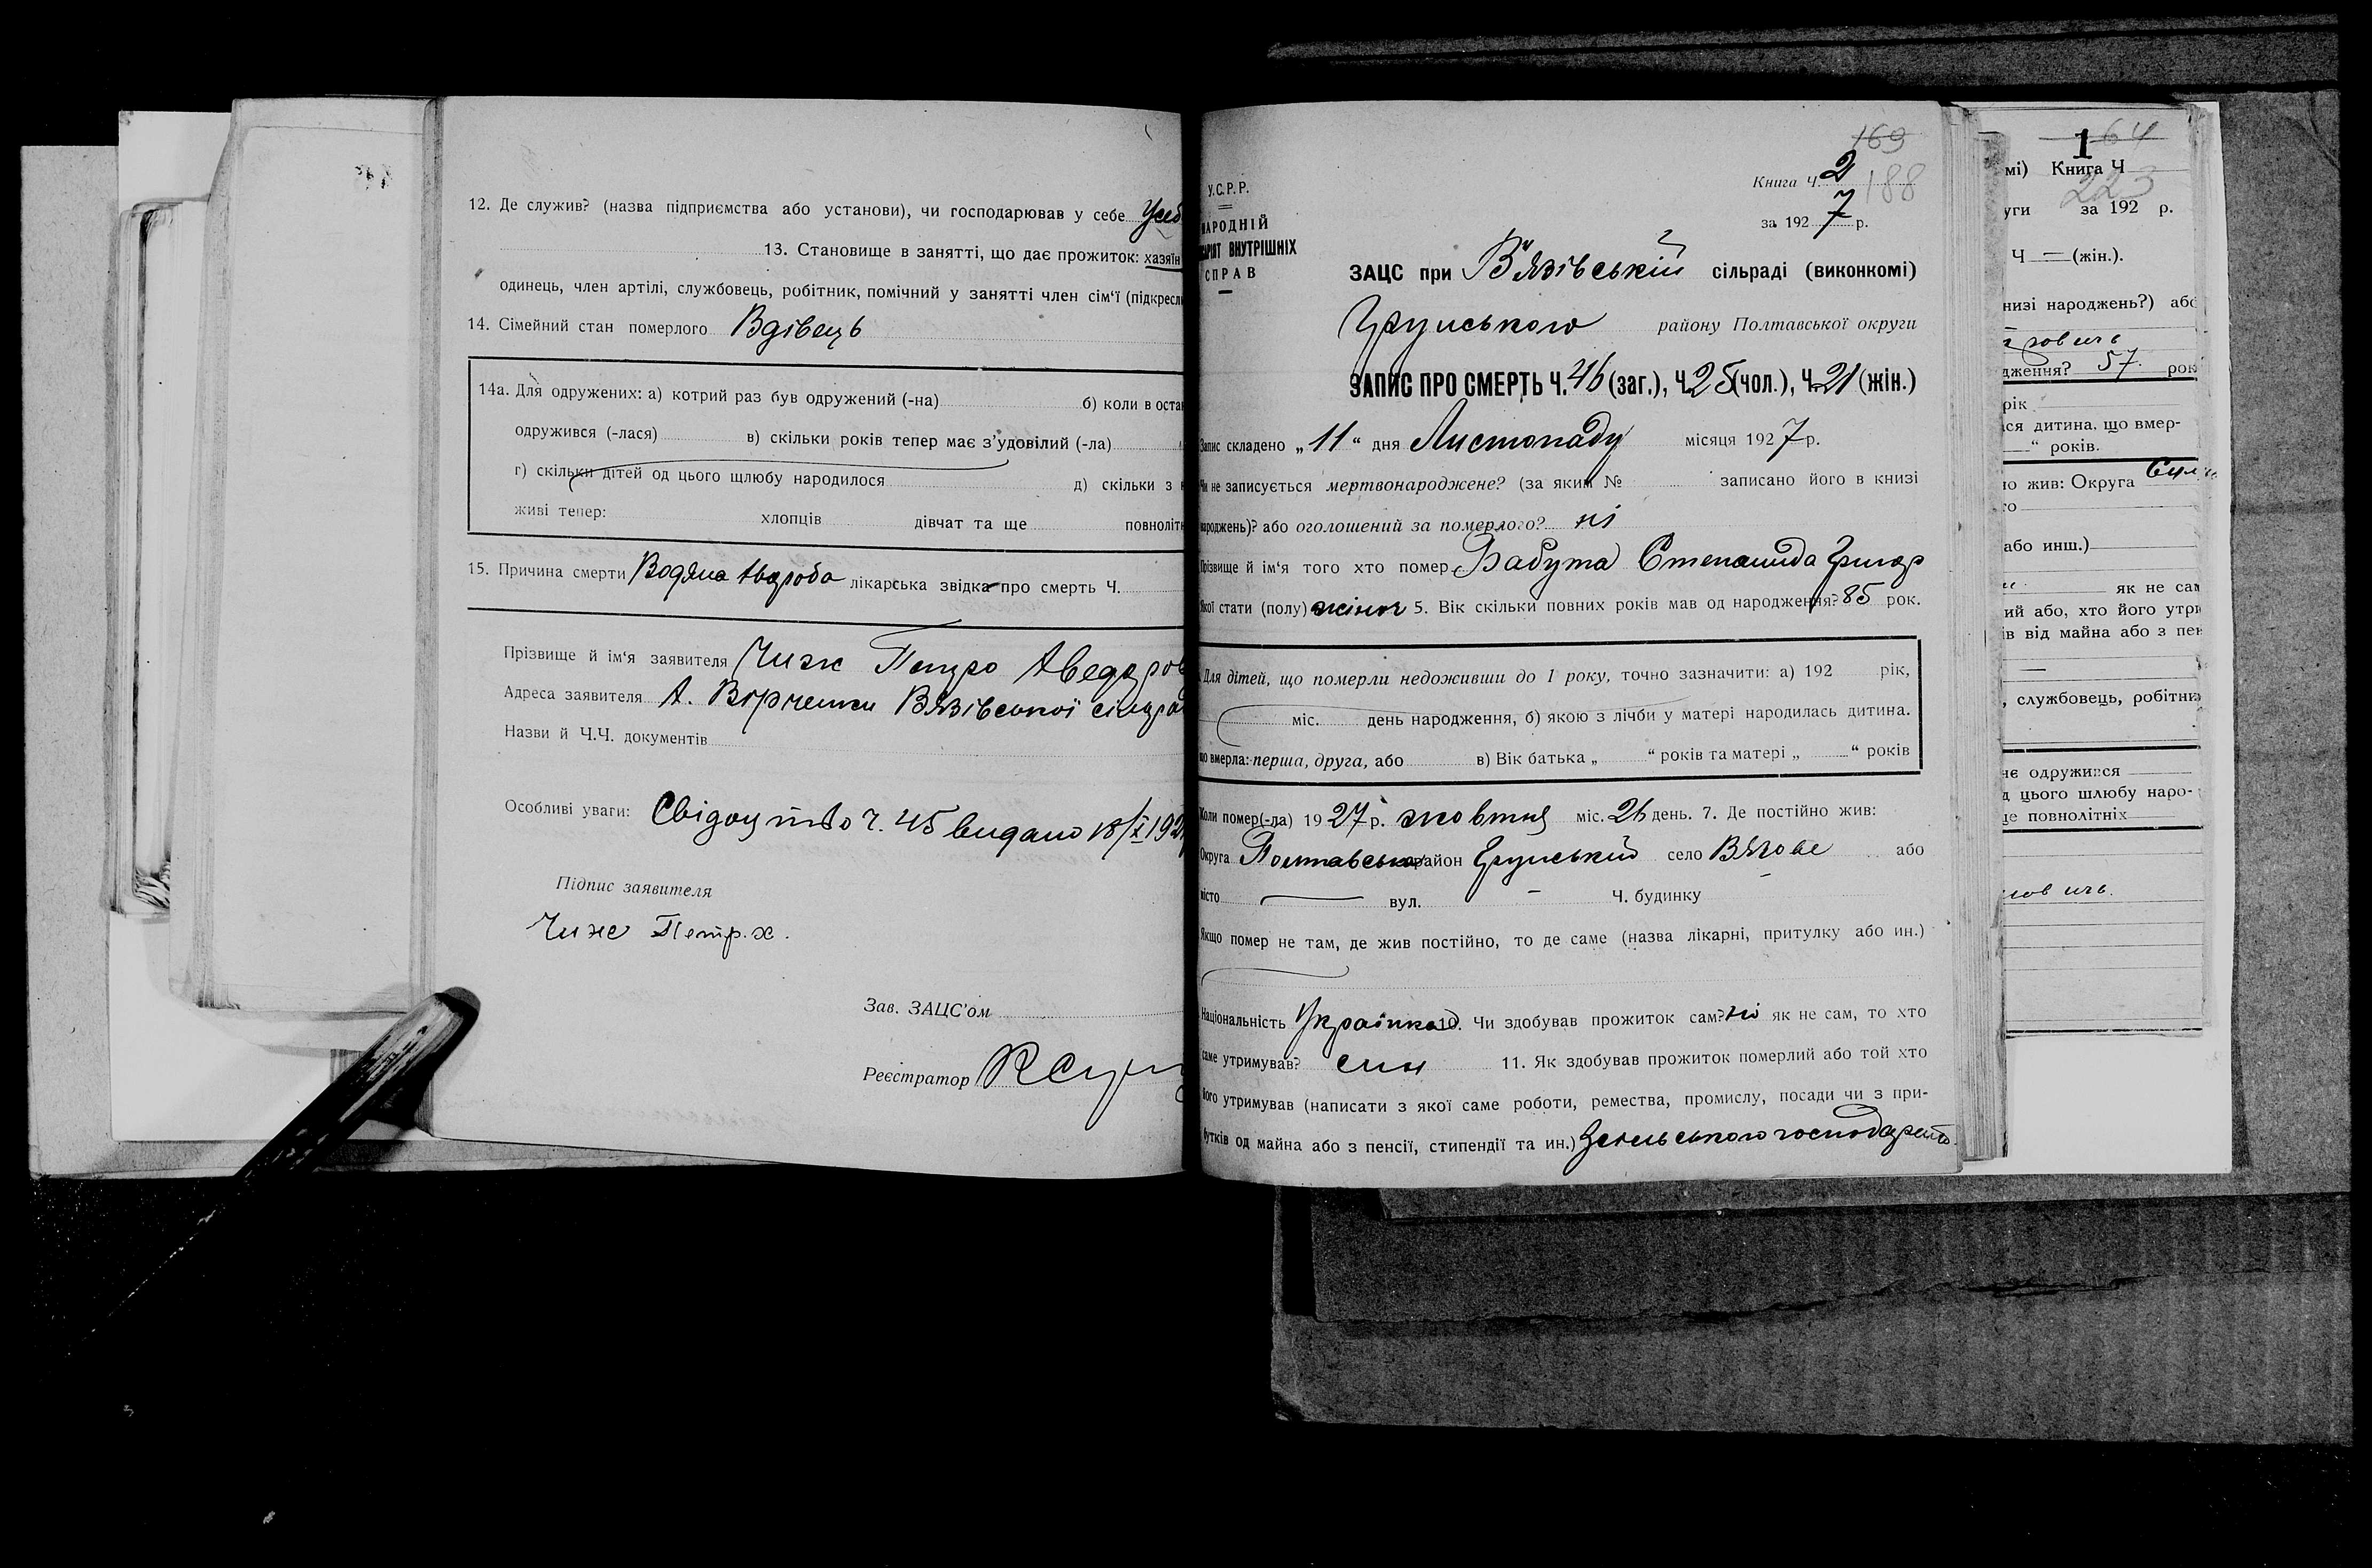 12. Де служив? (назва підприємства або установи), чи господарював у себе Усеб
13. Становище в занятті, що дає прожиток: хазяїн
одинець, член артілі, службовець, робітник, помічний у занятті член сім'ї (підкресл
14. Сімейний стан померлого Вдівець
14а. Для одружених: а) котрий раз був одружений (-на) б) коли в оста
одружився (-лася) в) скільки років тепер має з'удовілий (-ла)
г) скільки дітей од цього щлюбу народилося д) скільки з
живі тепер: хлопців дівчат та ще повноліт
15. Причина смерти Водяна лікарська звідка про смерть Ч.
Прізвище й ім'я заявителя Чиж Петро
Адреса заявителя Вязівської
Назви й Ч.Ч. документів
Особливі уваги: Свідоцтво Ч. 45 видано 18/X 192
Підпис заявителя
Чиж Петр.
Зав. ЗАЦС'ом
Реєстратор
169
Книга Ч. 2 188
за 1927 р.
У.С.Р.Р.
НАРОДНІЙ
ВНУТРІШНІХ
СПРАВ
ЗАЦС при В'язівській сільраді (виконкомі)
Груньського району Полтавської округи
ЗАПИС ПРО СМЕРТЬ Ч. 46 (заг.), Ч. 25 (чол.), Ч. 21 (жін.)
Запис складено „11“ дня Листопаду місяця 1927 р.
Чи не записується мертвонароджене? (за яким № записано його в книзі
народжень)? або оголошений за померлого? ні
Прізвище й ім'я того хто помер Бабута Степанида Григор
Якої стати (полу) жіноч 5. Вік скільки повних років мав од народження? 85 рок.
Для дітей, що померли недоживши до 1 року, точно зазначити: а) 192 рік,
міс. день народження, б) якою з лічби у матері народилась дитина.
що вмерла: перша, друга, або в) Вік батька „ “ років та матері „ “ років
Коли помер(-ла) 1927 р. жовтня міс. 26 день. 7. Де постійно жив:
Округа Полтавська район Груньський село Вязове або
місто вул. Ч. будинку
Якщо помер не там, де жив постійно, то де саме (назва лікарні, притулку або ин.)
Національність Українка 10. Чи здобував прожиток сам? ні як не сам, то хто
саме утримував? син 11. Як здобував прожиток померлий або той хто
його утримував (написати з якої саме роботи, ремества, промислу, посади чи з при-
бутків од майна або з пенсії, стипендії та ин.)
1 64
мі) Книга Ч
223
уги за 192 р.
Ч — (жін.).
низі народжень?) або
дження? 57 рок
рік
ся дитина, що вмер-
“ років.
о жив: Округа
го
або инш.)
як не сам
ий або, хто його утри
ів від майна або з пен
, службовець, робітник
нє одружився
д цього шлюбу наро-
ще повнолітніх